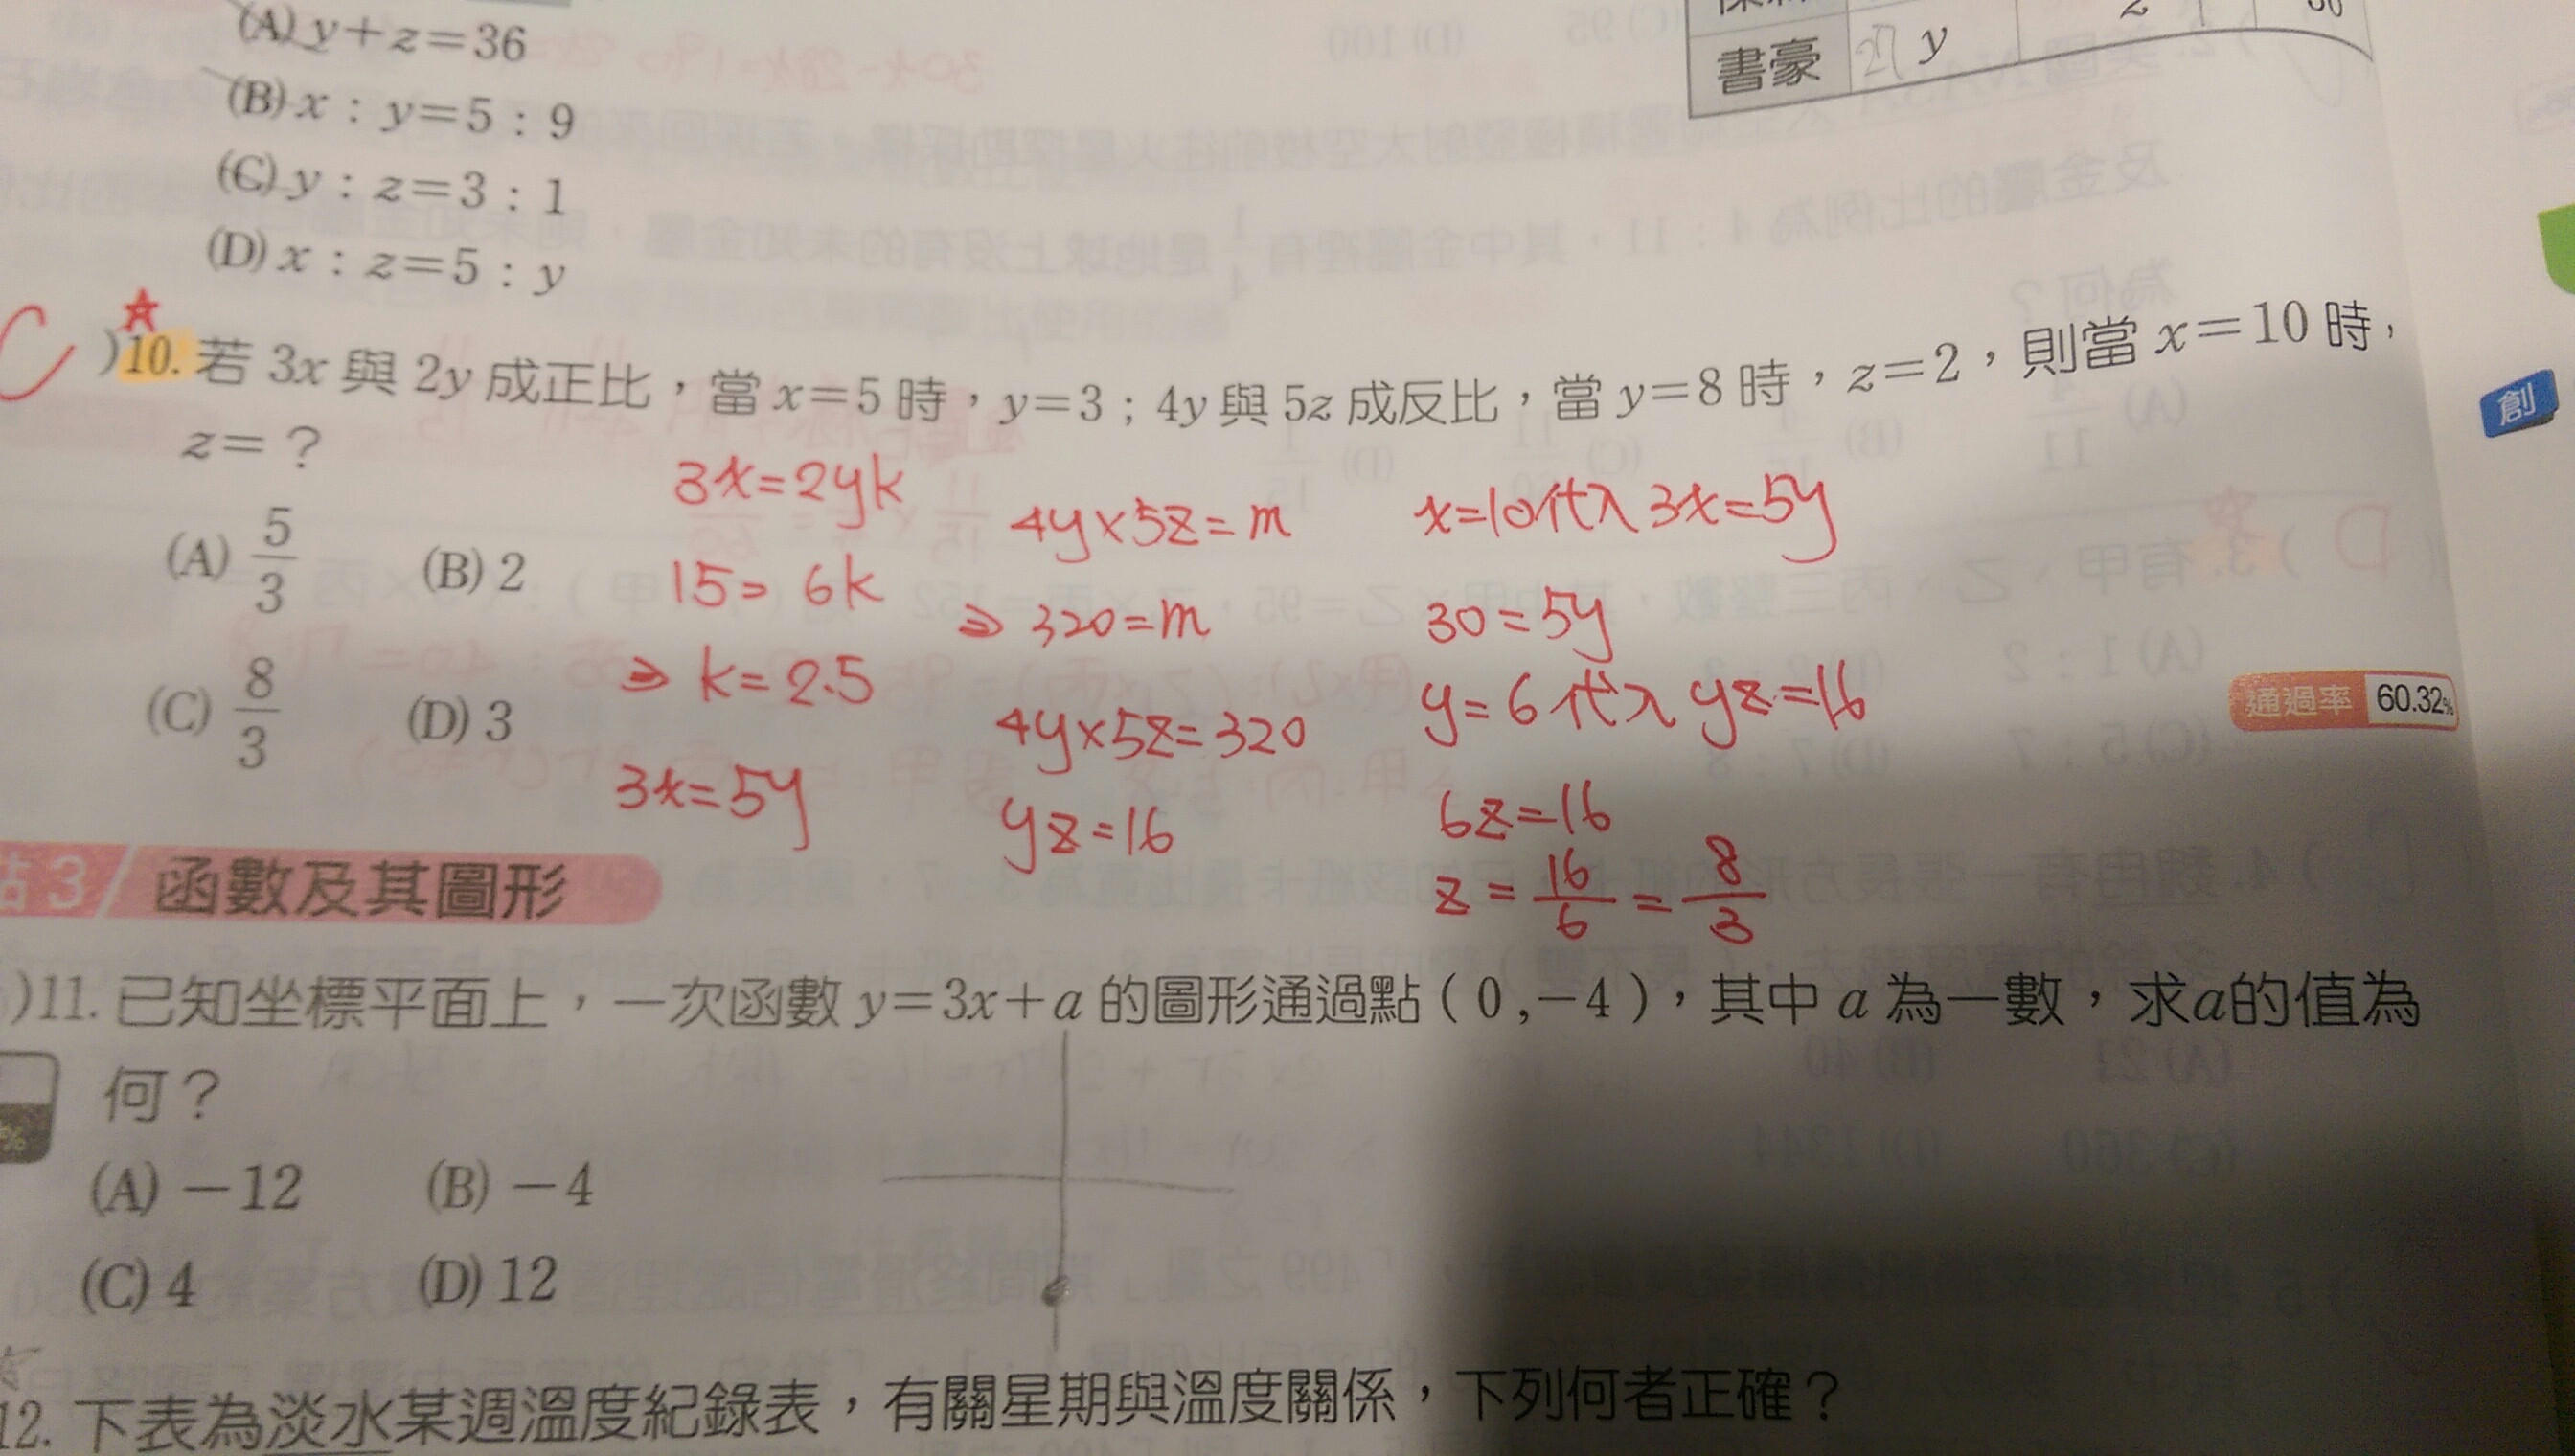 (A) y+z=36
(B) x：y=5：9
(C) y：z=3：1
(D) x：z=5：y
書豪 27 y
C )10. 若 3x 與 2y 成正比，當 x=5 時，y=3；4y 與 5z 成反比，當 y=8 時，z=2，則當 x=10 時，
z=？
(A) 5/3 (B) 2
(C) 8/3 (D) 3
創
通過率 60.32%
3x=2yk
15=6k
⇒ k=2.5
3x=5y
4y×5z=m
⇒ 320=m
4y×5z=320
yz=16
x=10代入 3x=5y
30=5y
y=6代入 yz=16
6z=16
z=16/6=8/3
點3 函數及其圖形
)11. 已知坐標平面上，一次函數 y=3x+a 的圖形通過點（0,−4），其中 a 為一數，求a的值為
何？
(A) −12 (B) −4
(C) 4 (D) 12
12. 下表為淡水某週溫度紀錄表，有關星期與溫度關係，下列何者正確？